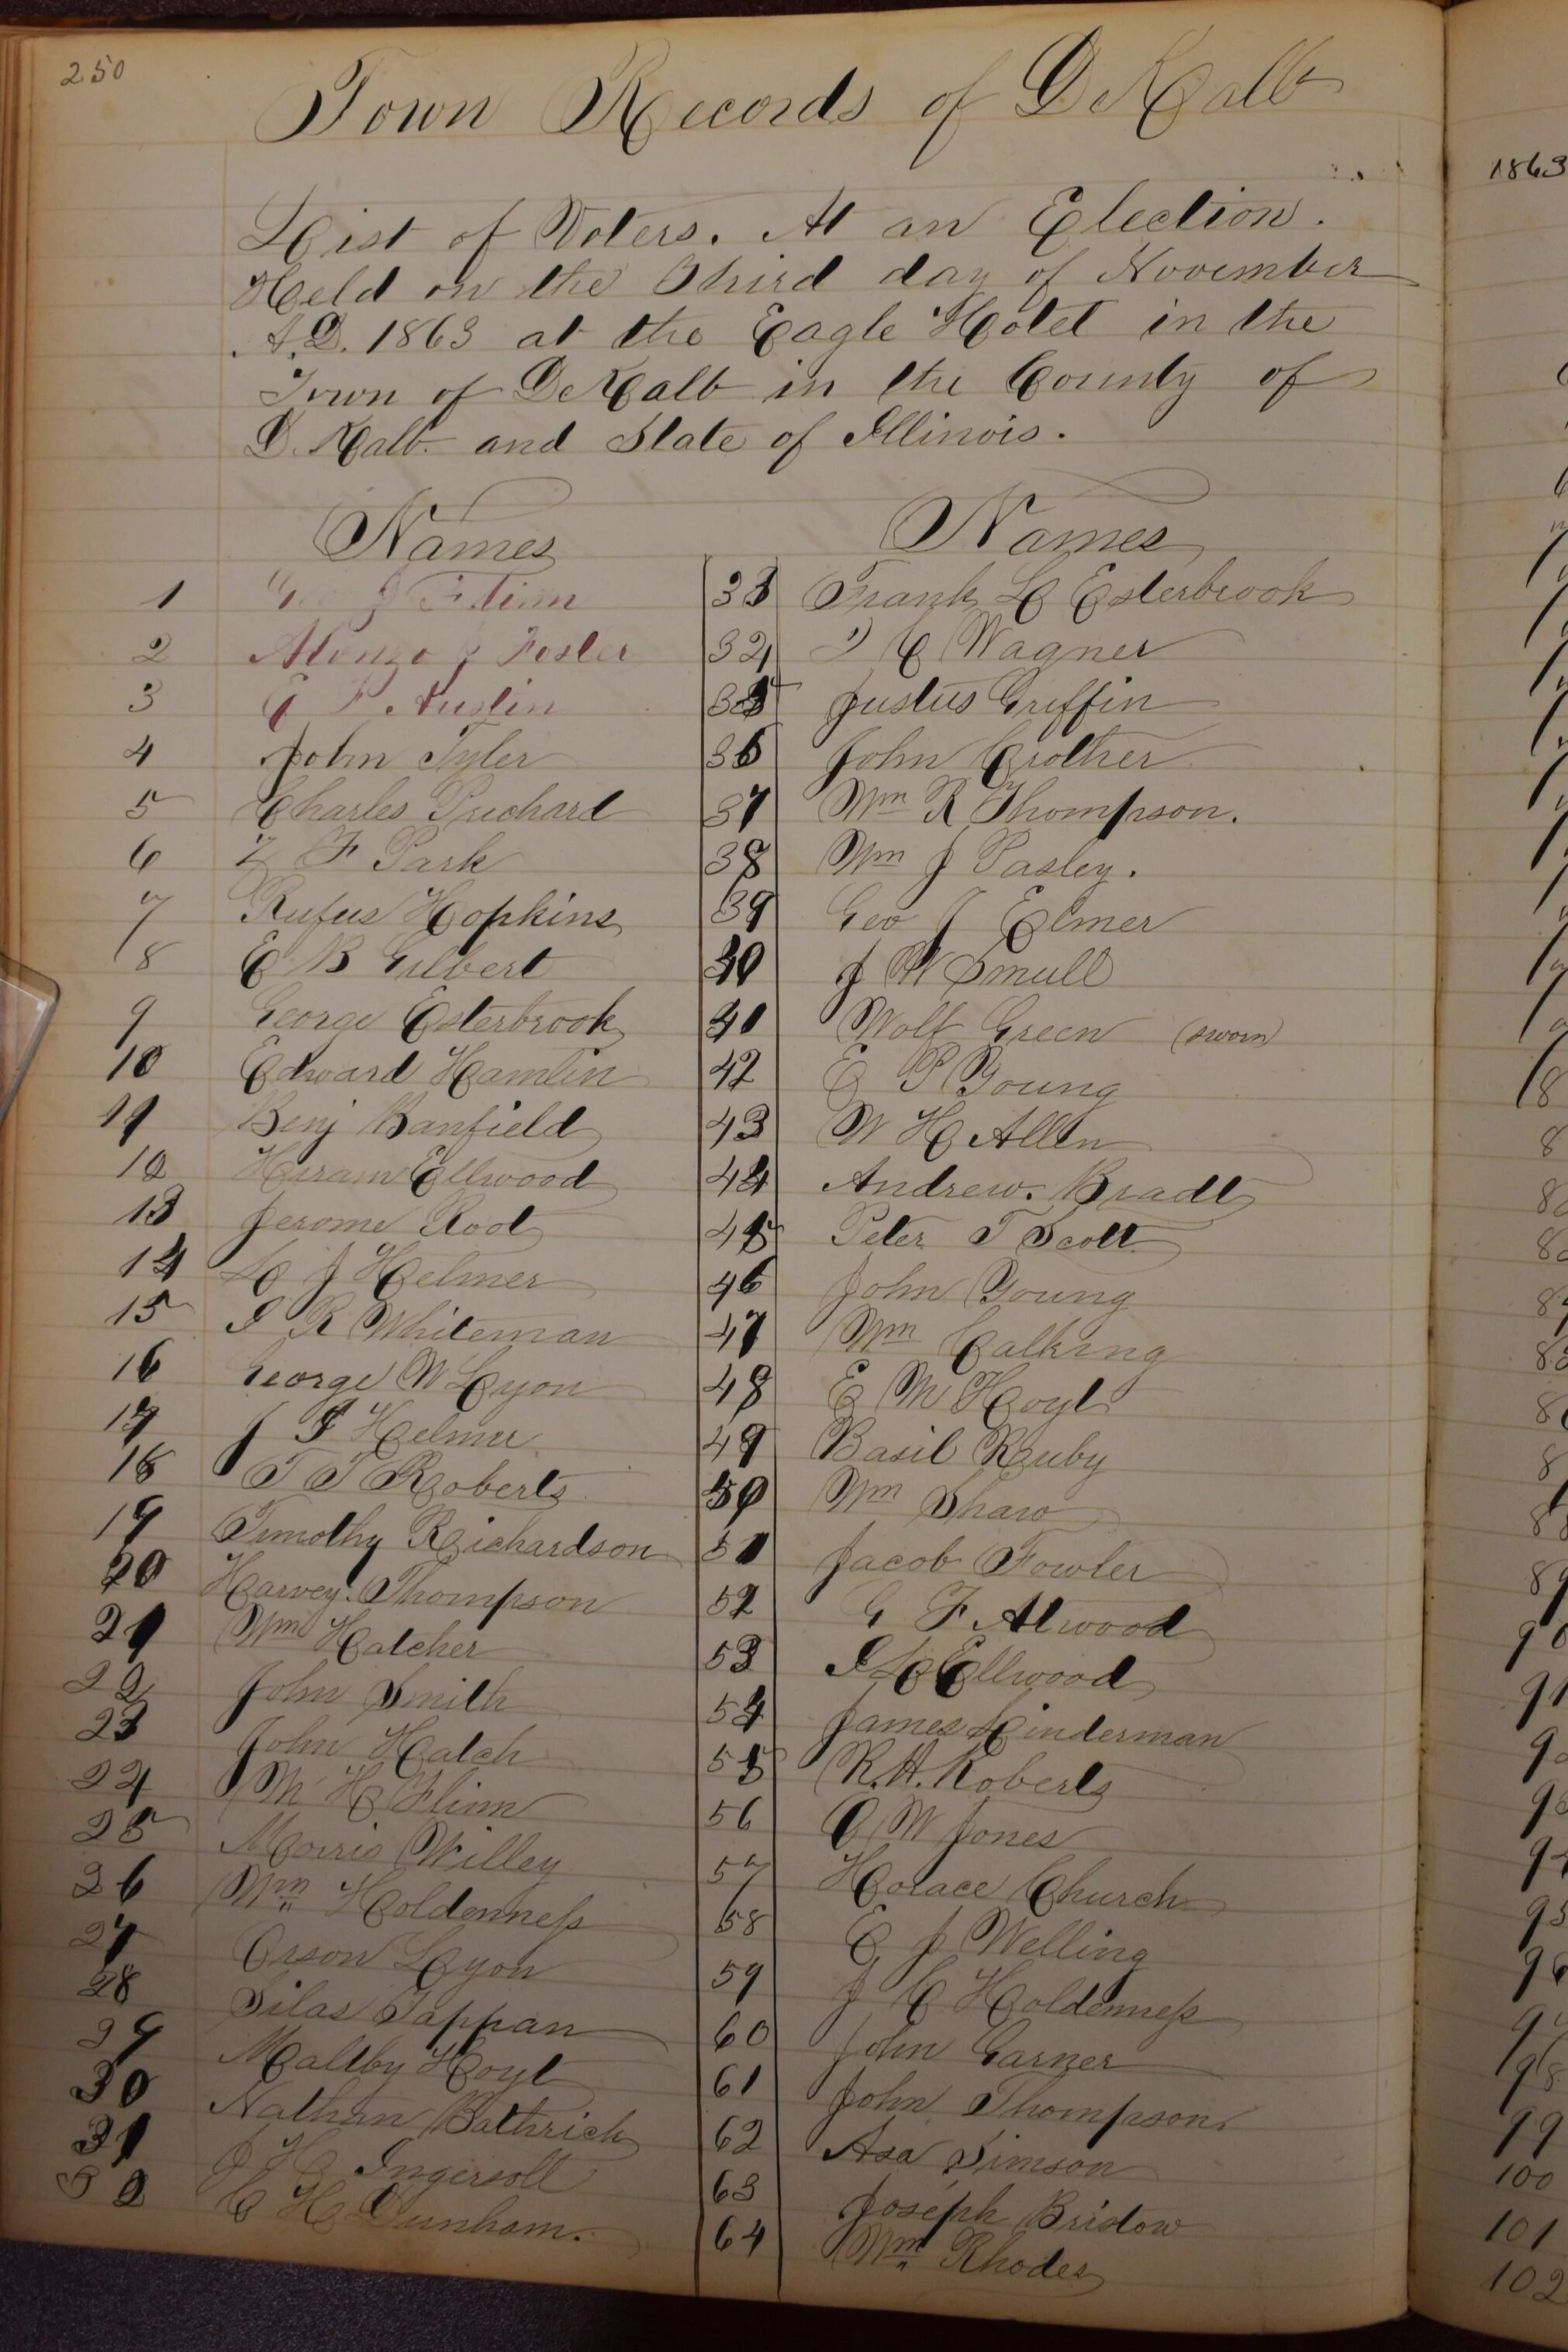 250
Town Records of DeKalb
List of Voters. At an Election.
Held on the Third day of November
A.D. 1863 at the Eagle Hotel in the
Town of DeKalb in the County of
D. Kalb. and State of Illinois.
Names
1 Flinn
2 Alonzo J Foster
3 Austin
4 John Tyler
5 Charles Prichard
6 Z F Park
7 Rufus Hopkins
8 E B Gilbert
9 George Esterbrook
10 Edward Hamlin
11 Benj Banfield
12 Hiram Ellwood
13 Jerome Root
14 L J Helmer
15 I R Whiteman
16 George W Lyon
17 J Helmer
18 T T Roberts
19 Timothy Richardson
20 Harvey. Thompson
21 Wm Hatcher
22 John Smith
23 John Hatch
24 M H Flinn
25 Morris Willey
26 Wm Holdenness
27 Orson Lyon
28 Silas Tappan
29 Maltby Hoyt
30 Nathan Bathrick
31 J H Ingersoll
32 C H Dunham.
Names
33 Frank L Esterbrook
34 C Wagner
35 Justus Griffin
36 John Crother
37 Wm R Thompson.
38 Wm J Pasley.
39 Geo J Elmer
40 J W Smull
41 Wolf Green (sworn)
42 E P Young
43 W H Allen
44 Andrew. Bradt
45 Peter T Scott
46 John Young
47 Wm Calking
48 E M Hoyt
49 Basil Ruby
50 Wm Shaw
51 Jacob Fowler
52 G F Atwood
53 I L Ellwood
54 James Linderman
55 R.H. Roberts
56 O W Jones
57 Horace Church
58 E J Welling
59 J C Holdenness
60 John Garner
61 John Thompson
62 Asa Simson
63 Joseph Bristow
64 Wm Rhodes
1863
90
91
96
98
99
100
101
102